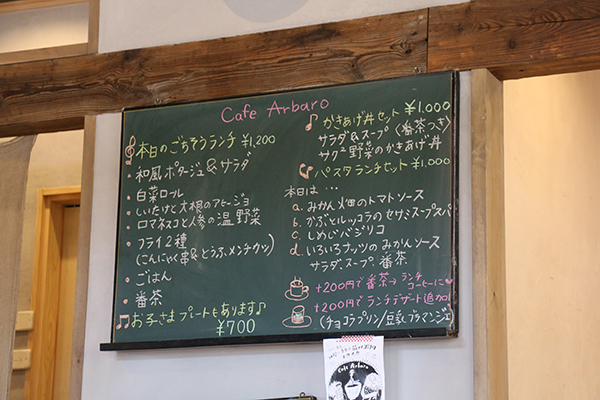 Cafe Arbaro
本日のごちそうランチ ¥1,200
・和風ポタージュ&サラダ
・白菜ロール
・しいたけと大根のアヒージョ
・ロマネスコと人参の温野菜
・フライ2種
(こんにゃく串&とうふメンチカツ)
・ごはん
・番茶
お子さまプレートもあります♪
¥700
♪かきあげ丼セット ¥1,000
サラダ&スープ (番茶つき)
サクサク野菜のかきあげ丼
パスタランチセット ¥1,000
本日は…
a. みかん畑のトマトソース
b. かぶとルッコラのせサスープスパ
c. しめじバジリコ
d. いろいろナッツのみかんソース
サラダ、スープ、番茶
+200円で番茶→ランチコーヒーに
+200円でランチデザート追加!
(チョコラプリン/豆乳ブラマンジェ)
Cafe Arbaro